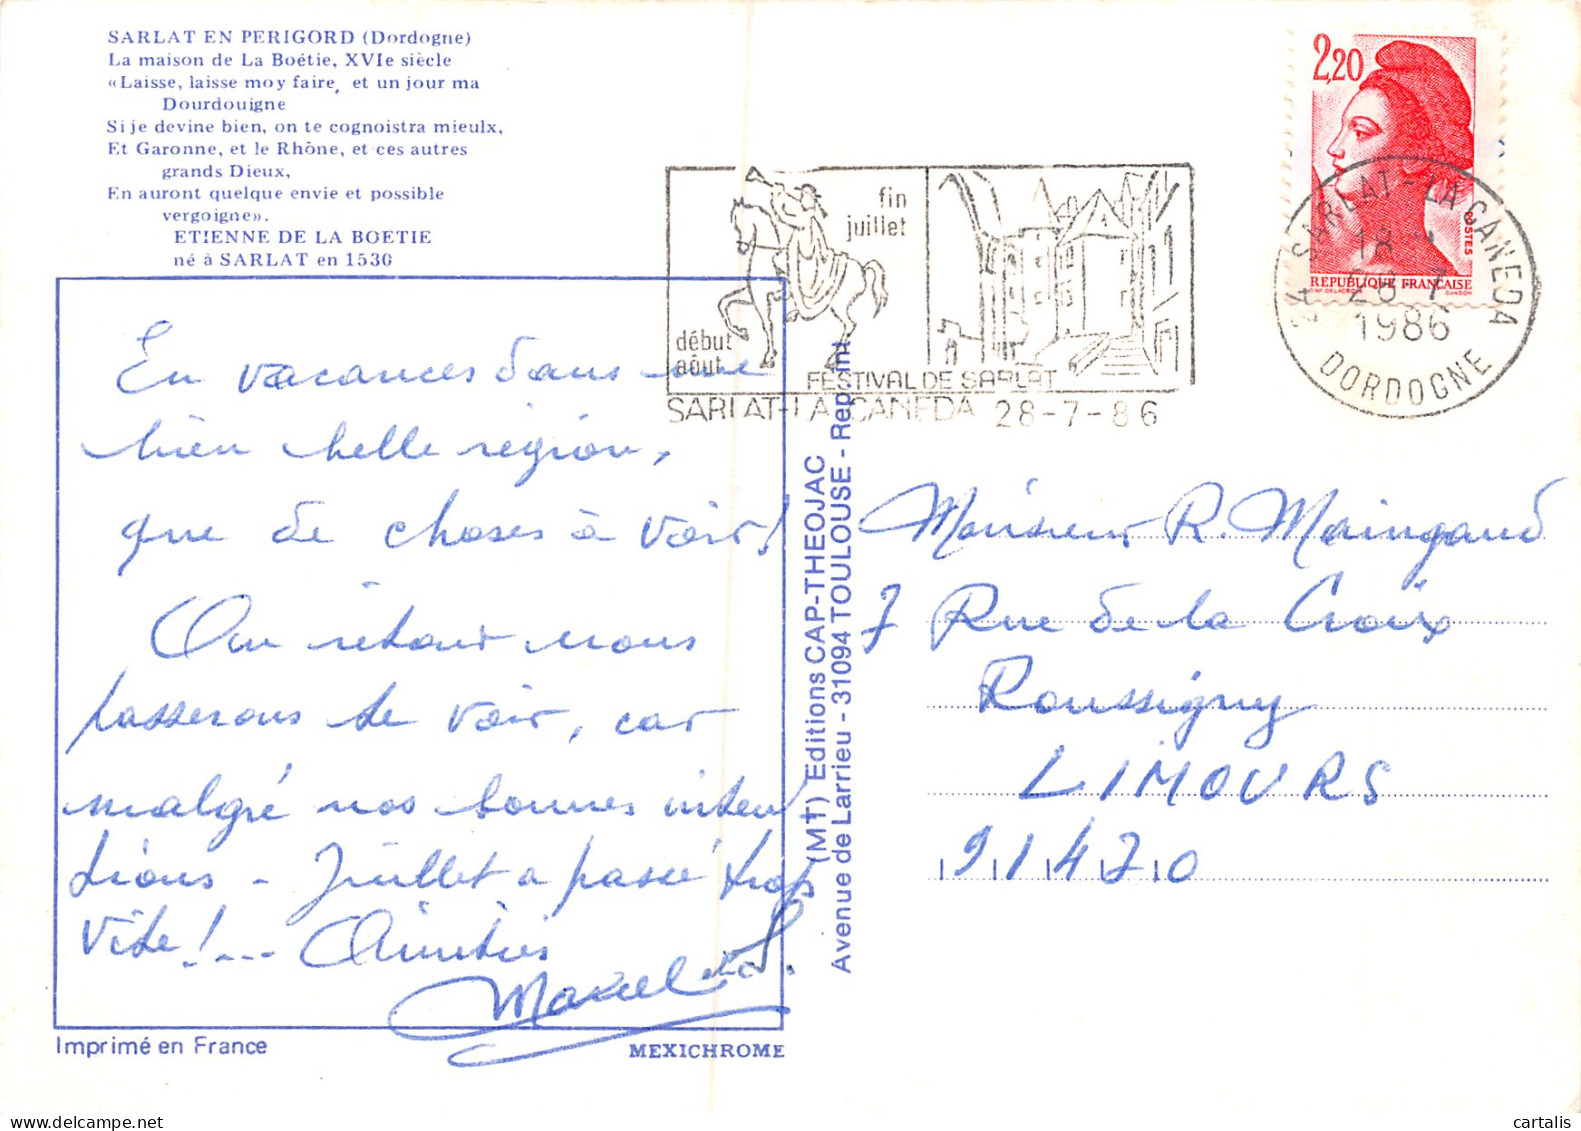 SARLAT EN PERIGORD (Dordogne)
La maison de La Boétie, XVIe siècle
«Laisse, laisse moy faire, et un jour ma
Dourdouigne
Si je devine bien, on te cognoistra mieulx,
Et Garonne, et le Rhône, et ces autres
grands Dieux,
En auront quelque envie et possible
vergoigne».
ETIENNE DE LA BOETIE
né à SARLAT en 1530
En vacances dans une
bien belle région,
que de choses à voir!
Au retour nous
passerons te voir, car
malgré nos bonnes inten
tions - Juillet a passé trop
vite!... Amitiés
Marcel
Imprimé en France
MEXICHROME
(MT) Editions CAP-THEOJAC
Avenue de Larrieu - 31094 TOULOUSE - Rep. int.
fin
juillet
début
août
FESTIVAL DE SARLAT
SARLAT-LA CANEDA 28-7-86
2,20
POSTES
REPUBLIQUE FRANÇAISE
24 SARLAT-LA CANEDA
18
28-7
1986
DORDOGNE
Monsieur R. Maingaud
7 Rue de la Croix
Roussigny
LIMOURS
91470
cartalis